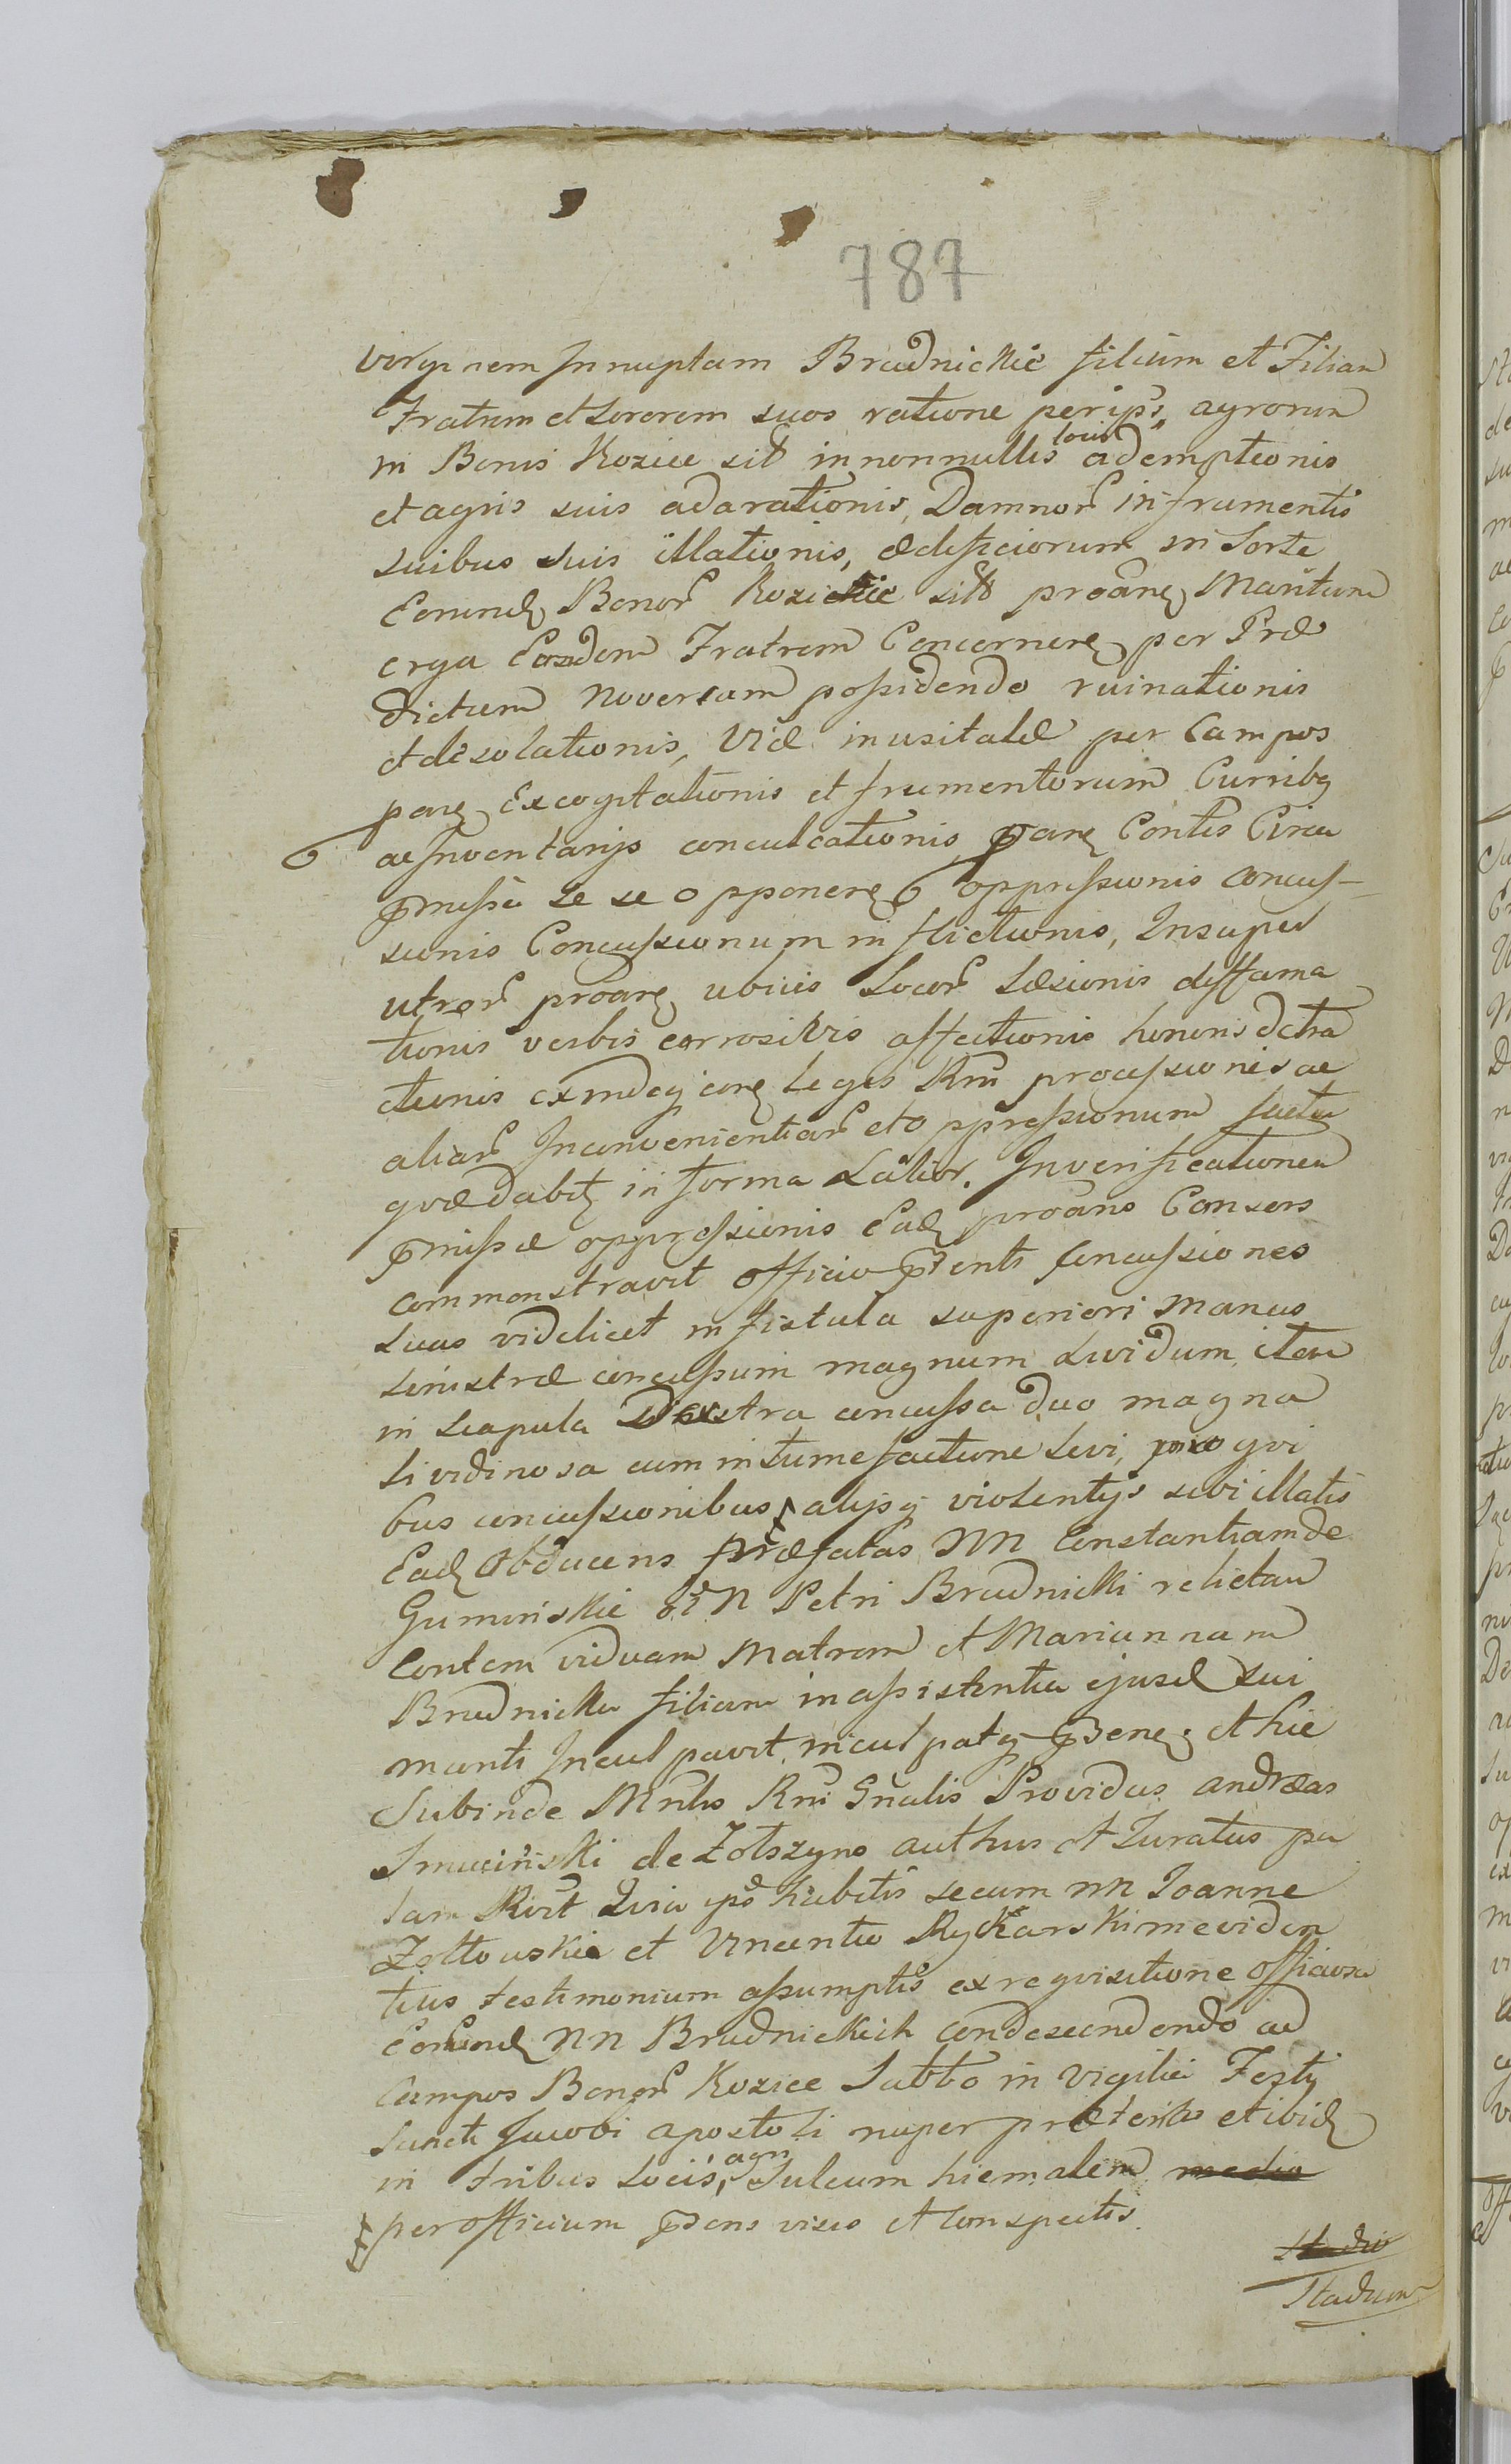 787
virginem Innuptam Brudnickie filium et Filiam
Fratrem et Sororem suos ratione per ipos agrorum
in Bonis Kozice sit in nonnullis locis ademptionis
et agris suis adarationis, Damnor in frumentis
suibus suis illationis, ædificiorum in Sorte
Eorund Bonor Kozickie sit proane Maritum
erga Eosdem Fratrem Concernen per Præ
dictum Novercam possidendo ruinationis
et desolationis, Viæ inusitatæ per Campos
pane Excogitationis et frumentorum Curribq
ac Inventarijs conculcationis pane Contis Circa
pmissa se se opponen oppressionis concus-
sionis Concussionum inflictionis, Insuper
utror proane ubivis Locor Læsionis diffama
tionis verbis corrosivis affectionis honoris detra
ctionis exindeq Legis Rni processionis ac
aliar Inconvenientiar et oppressionum facta
quæ dabit in forma Latior. In verificationem
pmissæ oppressionis Ead proans Consors
commonstravit officio pnti Concussiones
suas videlicet in fistula superiori manus
sinistræ concussum magnum Lividum, item
in scapula Dextra concussa duo magna
lividinosa cum intumefactione Levi, pro qvi
bus concussionibus alijsq violentijs sibi illatis
Ead Obducens præfatas NN Constantiam de
Guminskie N Petri Brudnicki relictam
Contem viduam Matrem et Mariannam
Brudnicka filiam in assistentia ejusd sui
mariti Inculpavit, inculpatq et hic
Subinde Mntis Rni Gnalis Providus andreas
Smuciński de Zołszyno authus et Juratus pa
lam Rvit Quia ips habitis secum NN Joanne
Zołtowskie et Vincentio Rykarski in eviden
tius testimonium assumptis ex reqvisitione officiosa
Eorund NN Brudnickich condescendendo ad
Campos Bonor Kozice Sabbo in vigilia Festi
Sancti Jacobi apostoli nuper præterito et ibid
in tribus Locis, agri Sulcum hiemalem media
per officium pdens visis et conspectis
Stadio
Stadium